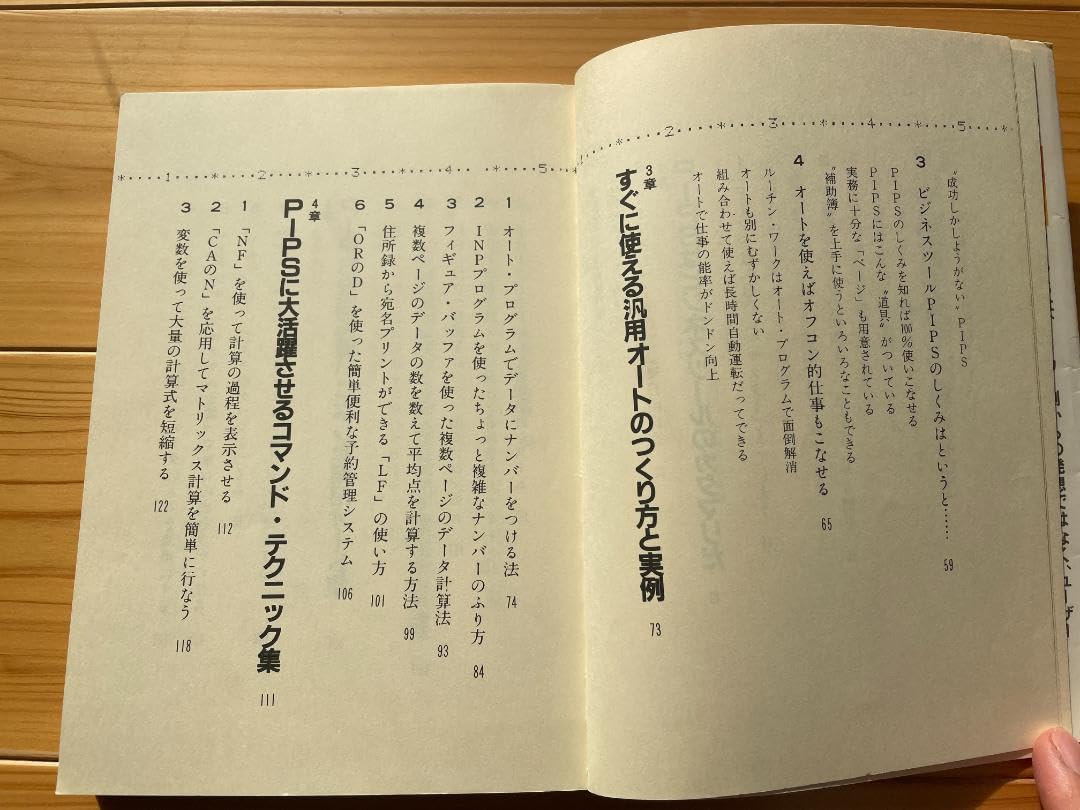 *・・・・2・・・・*・・・・3・・・・*・・・・4・・・・*・・・・5・・・・*
〝成功しかしようがない〟PIPS
3 ビジネスツールPIPSのしくみはというと…… 59
PIPSのしくみを知れば100%使いこなせる
PIPSにはこんな〝道具〟がついている
実務に十分な「ページ」も用意されている
〝補助簿〟を上手に使うといろいろなこともできる
4 オートを使えばオフコン的仕事もこなせる 65
ルーチン・ワークはオート・プログラムで面倒解消
オートも別にむずかしくない
組み合わせて使えば長時間自動運転だってできる
オートで仕事の能率がドンドン向上
3章
すぐに使える汎用オートのつくり方と実例 73
*・・・・1・・・・*・・・・2・・・・*・・・・3・・・・*・・・・4・・・・*・・・・5・・・・*
1 オート・プログラムでデータにナンバーをつける法 74
2 INPプログラムを使ったちょっと複雑なナンバーのふり方 84
3 フィギュア・バッファを使った複数ページのデータ計算法 93
4 複数ページのデータの数を数えて平均点を計算する方法 99
5 住所録から宛名プリントができる「LF」の使い方 101
6 「ORのD」を使った簡単便利な予約管理システム 106
4章
PIPSに大活躍させるコマンド・テクニック集 111
1 「NF」を使って計算の過程を表示させる 112
2 「CAのN」を応用してマトリックス計算を簡単に行なう 118
3 変数を使って大量の計算式を短縮する 122